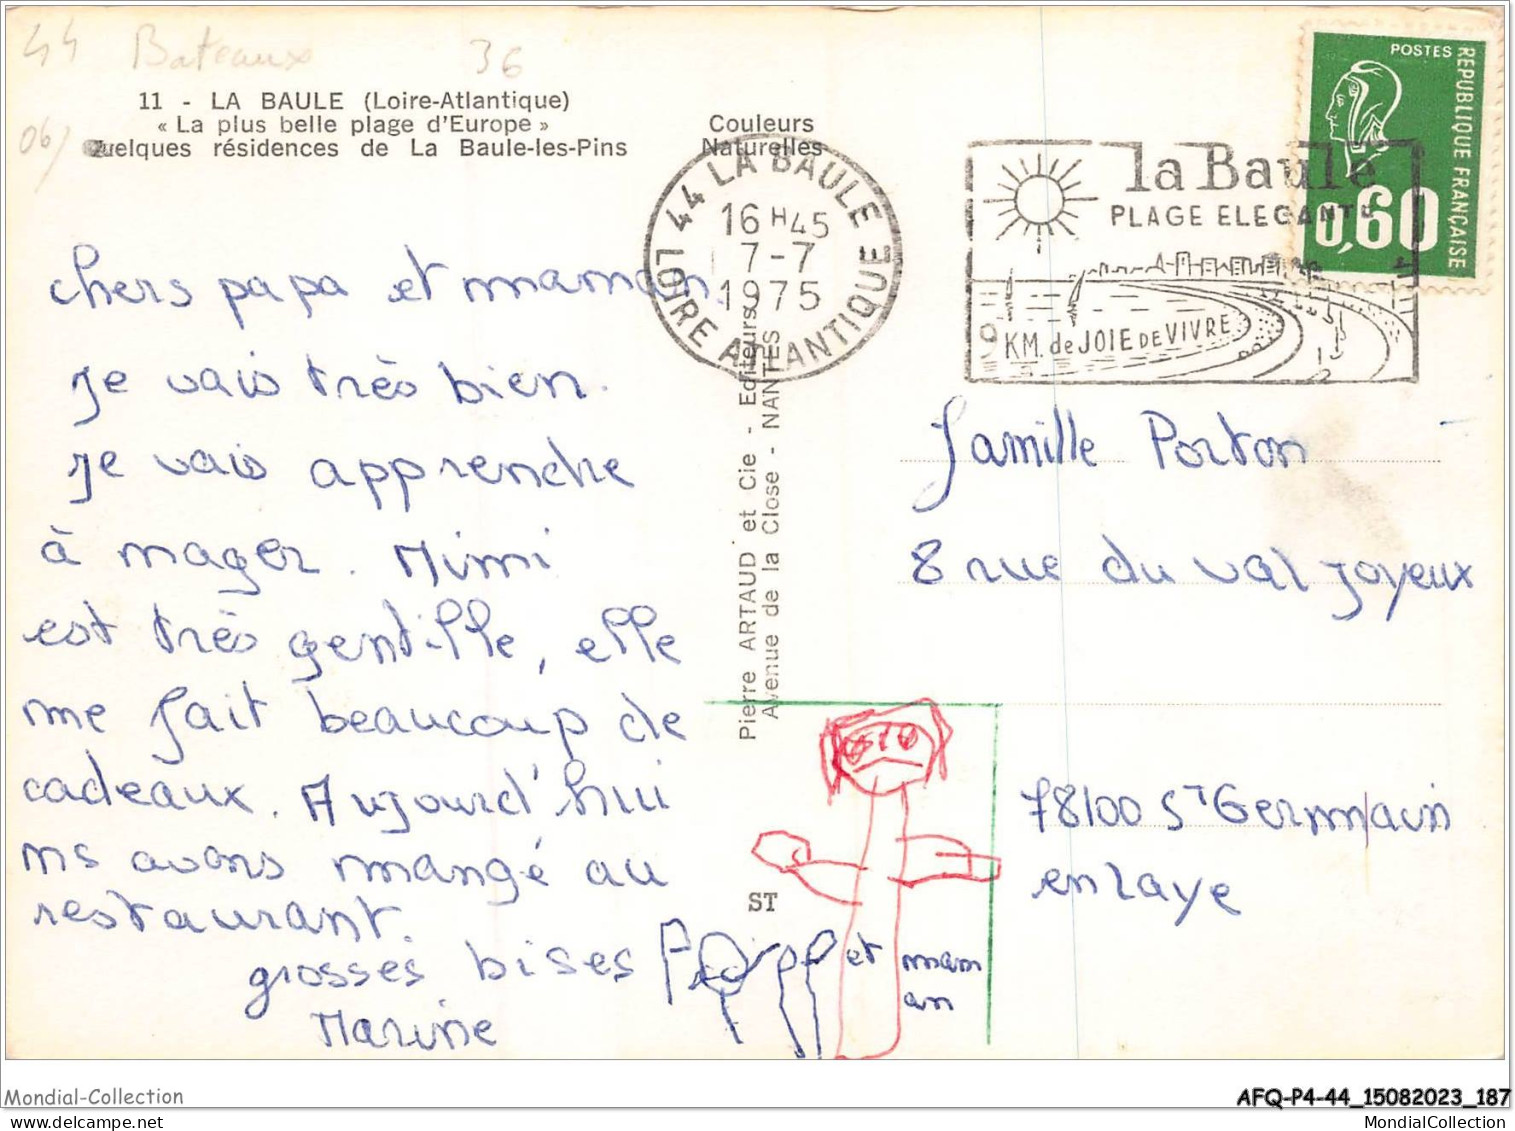 44 Bateaux 36
06/
11 - LA BAULE (Loire-Atlantique)
« La plus belle plage d'Europe »
Quelques résidences de La Baule-les-Pins
Couleurs
Naturelles
44 LA BAULE
16 H 45
7-7
1975
LOIRE ATLANTIQUE
la Baule
PLAGE ELEGANTE
9 KM. de JOIE DE VIVRE
POSTES
REPUBLIQUE FRANÇAISE
0,60
chers papa et maman.
Je vais très bien.
Je vais apprendre
à nager. Mimi
est très gentille, elle
me fait beaucoup de
cadeaux. Aujourd'hui
ns avons mangé au
restaurant.
grosses bises
Marine
et mam
an
Pierre ARTAUD et Cie - Editeurs
Avenue de la Close - NANTES
ST
famille Porton
8 rue du val joyeux
78100 ST Germain
en laye
Mondial-Collection
AFQ-P4-44_15082023_187
MondialCollection